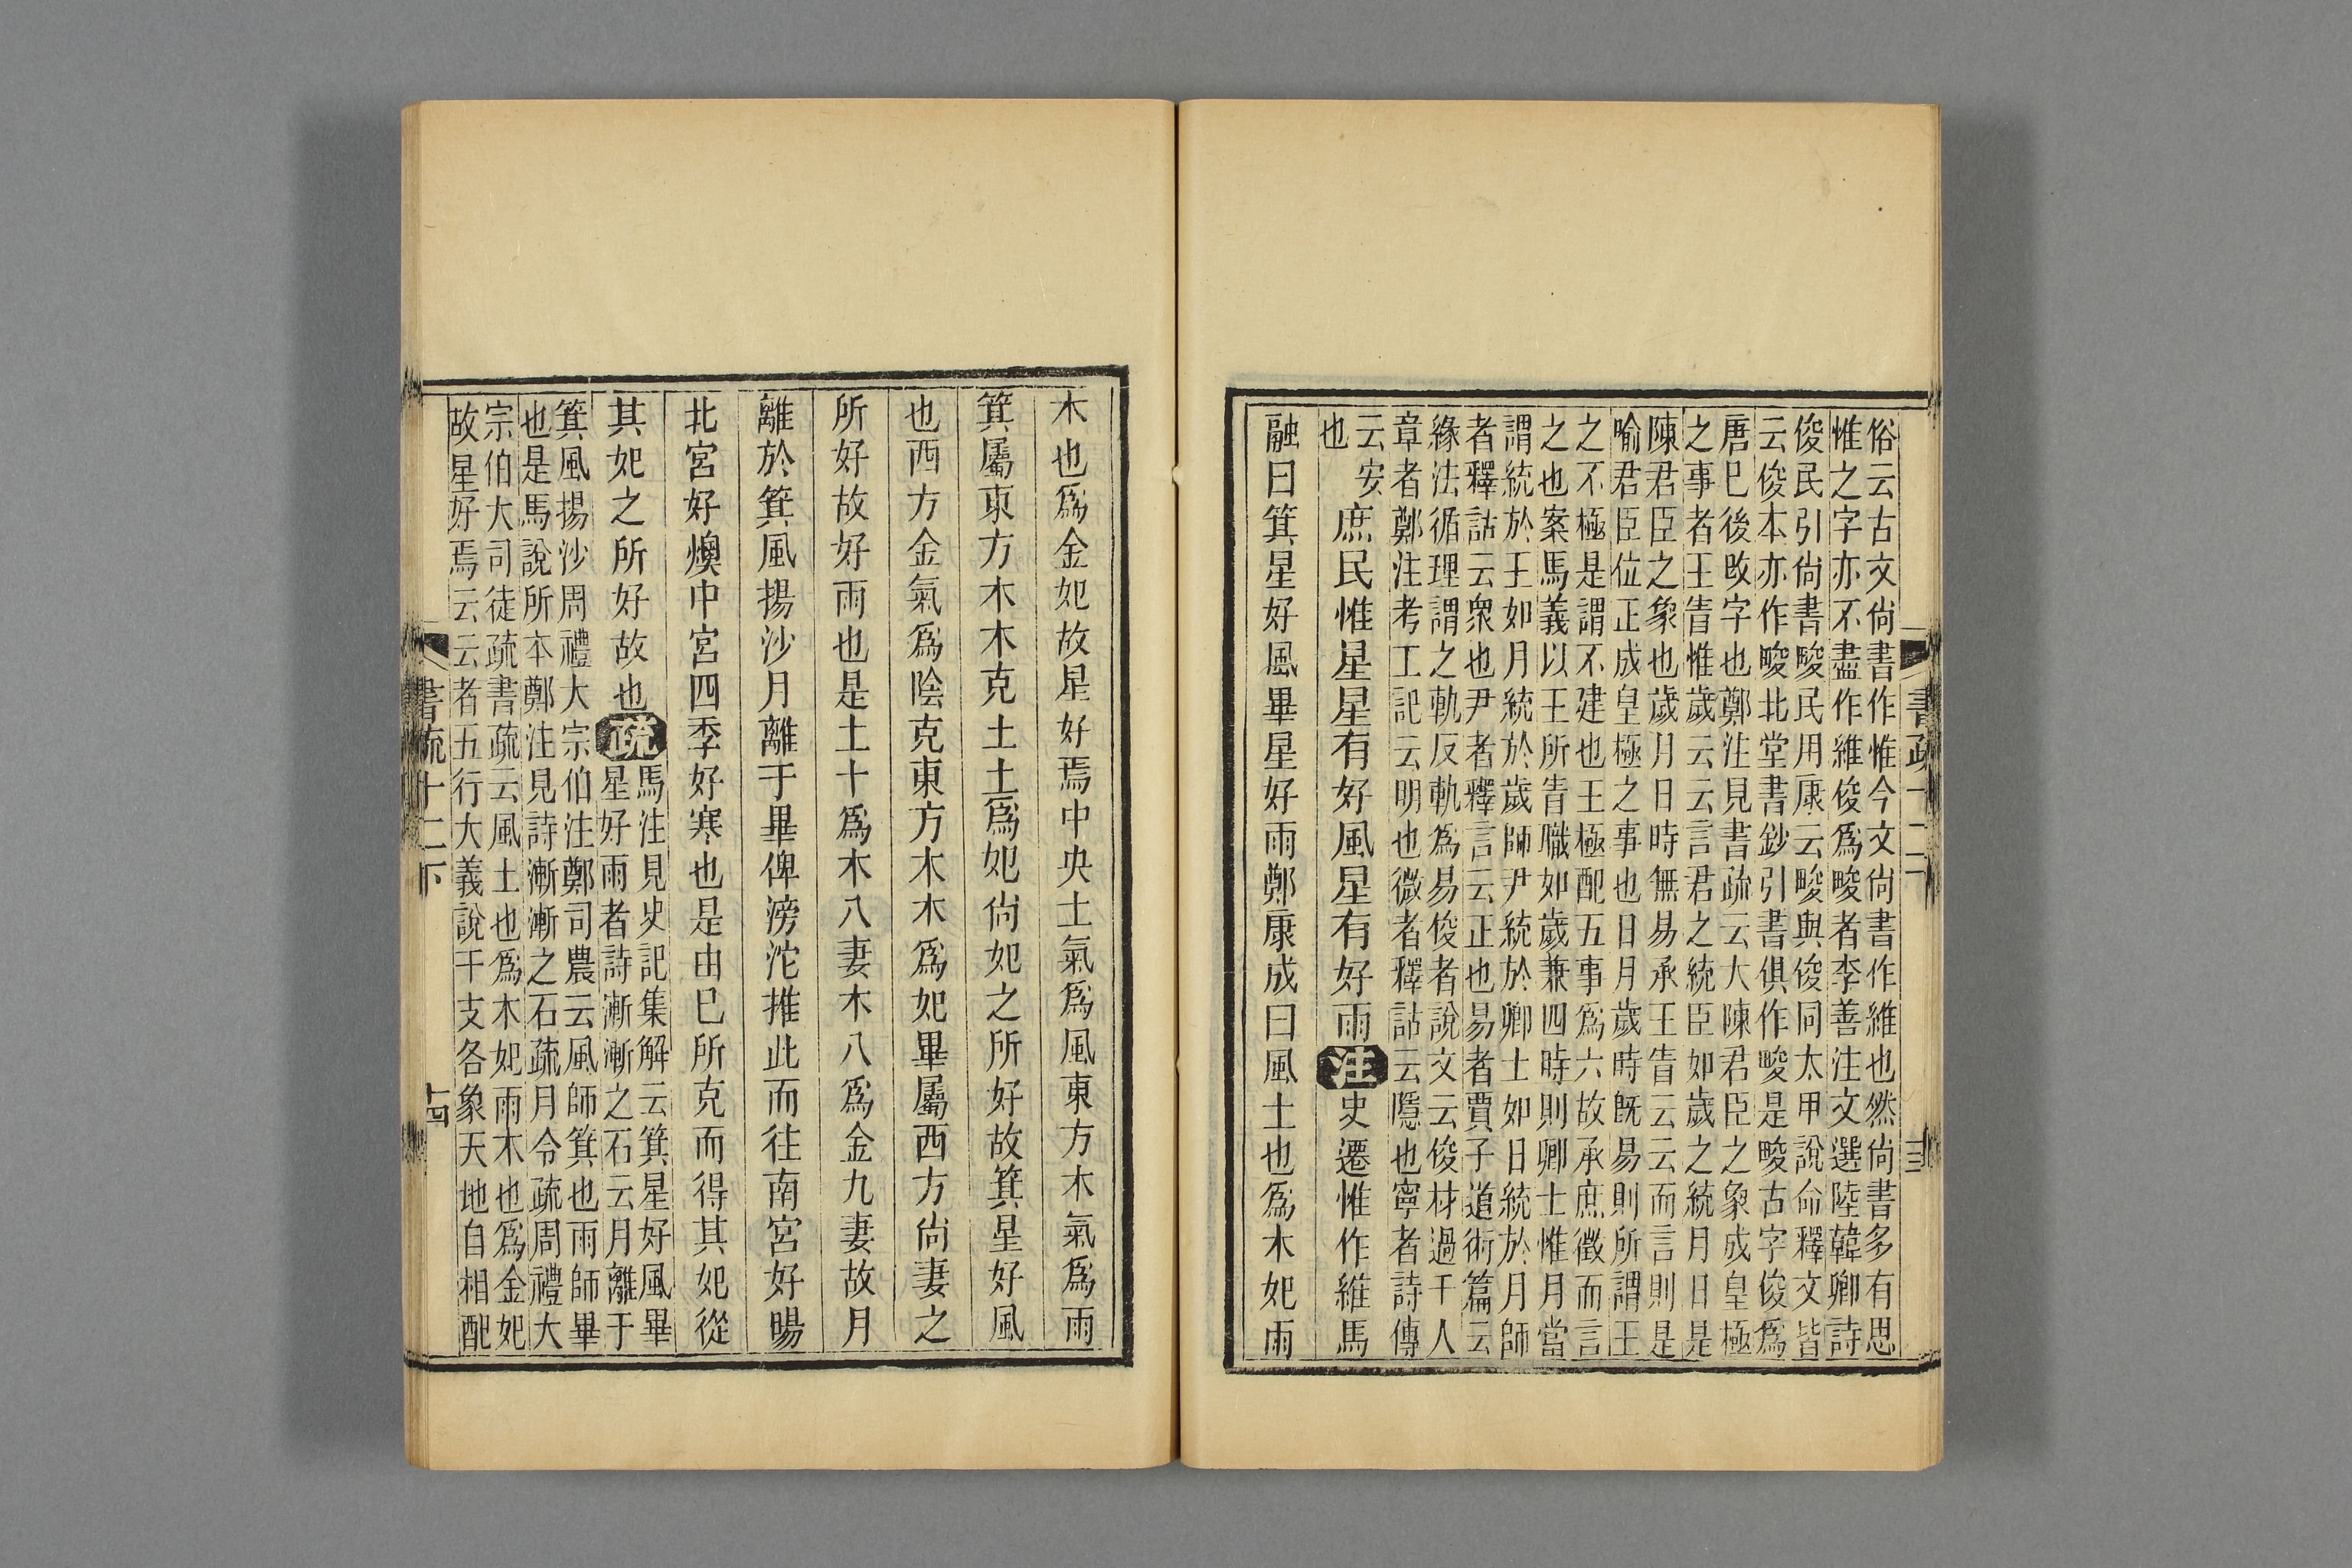 俗云古文尚書作惟今文尚書作維也然尚書多有思
惟之字亦不盡作維俊爲畯者李善注文選陸韓卿詩
俊民引尚書畯民用康云畯與俊同太甲說命釋文皆
云俊本亦作畯北堂書鈔引書俱作畯是畯古字俊爲
唐巳後改字也鄭注見書疏云大陳君臣之象成皇極
之事者王眚惟歲云云言君之統臣如歲之統月日是
陳君臣之象也歲月日時無易承王眚云云而言則是
喻君臣位正成皇極之事也日月歲時旣易則所謂王
之不極是謂不建也王極配五事爲六故承庶徵而言
之也案馬義以王所眚職如歲兼四時則卿士惟月當
謂統於王如月統於歲師尹統於卿士如日統於月師
者釋詁云眾也尹者釋言云正也易者賈子道術篇云
緣法循理謂之軌反軌爲易俊者說文云俊材過千人
章者鄭注考工記云明也微者釋詁云隱也寧者詩傳
云安
也
庶民惟星星有好風星有好雨注史遷惟作維馬
融曰箕星好風畢星好雨鄭康成曰風土也爲木妃雨
書疏十二下
十三
木也爲金妃故星好焉中央土氣爲風東方木氣爲雨
箕屬東方木木克土土爲妃尙妃之所好故箕星好風
也西方金氣爲陰克東方木木爲妃畢屬西方尙妻之
所好故好雨也是土十爲木八妻木八爲金九妻故月
離於箕風揚沙月離于畢俾滂沱推此而往南宮好暘
北宮好燠中宮四季好寒也是由巳所克而得其妃從
其妃之所好故也疏
馬注見史記集解云箕星好風畢
星好雨者詩漸漸之石云月離于
箕風揚沙周禮大宗伯注鄭司農云風師箕也雨師畢
也是馬說所本鄭注見詩漸漸之石疏月令疏周禮大
宗伯大司徒疏書疏云風土也爲木妃雨木也爲金妃
故星好焉云云者五行大義說干支各象天地自相配
書疏十二下
十四